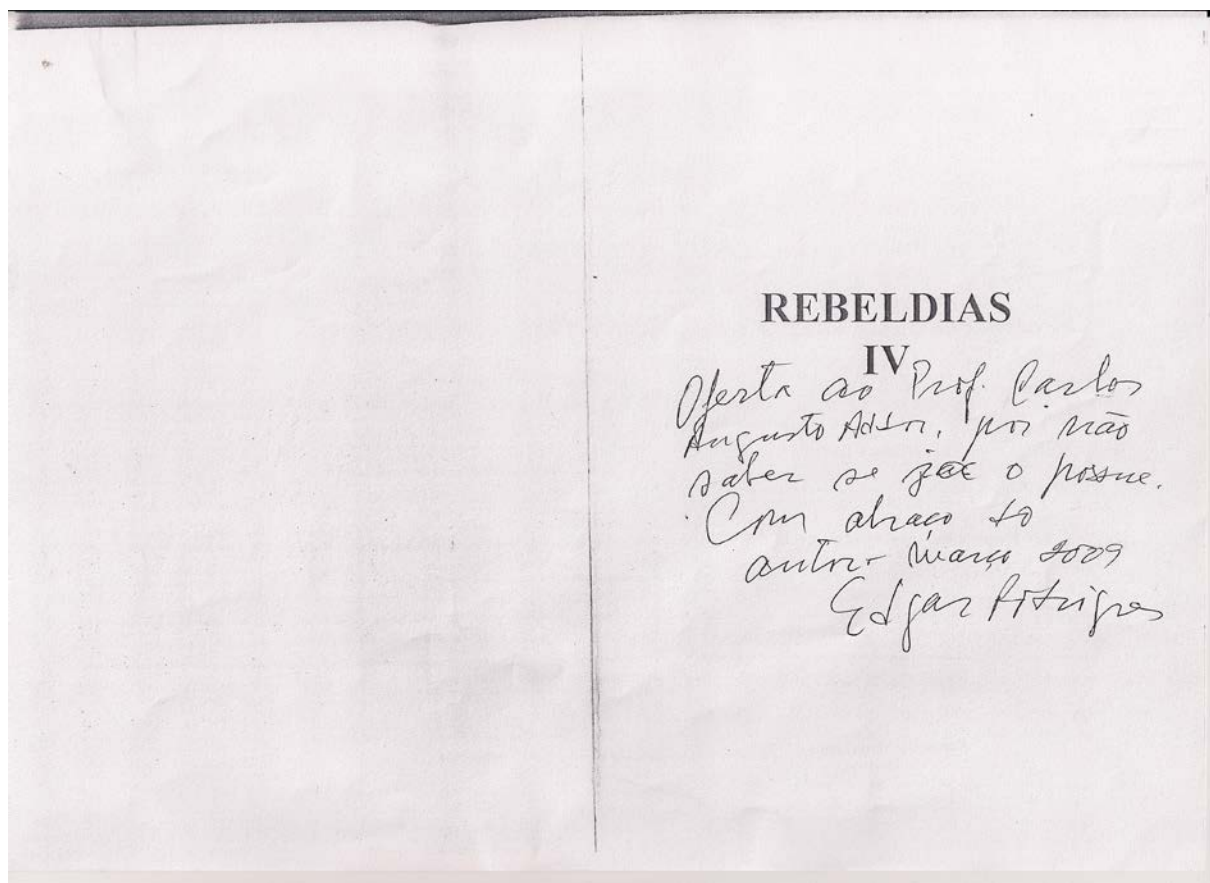 REBELDIAS
IV
Oferta ao Prof. Carlos
Augusto Addor, por não
saber se já o possue.
Com abraço do
autor - março 2009
Edgar Rodrigues